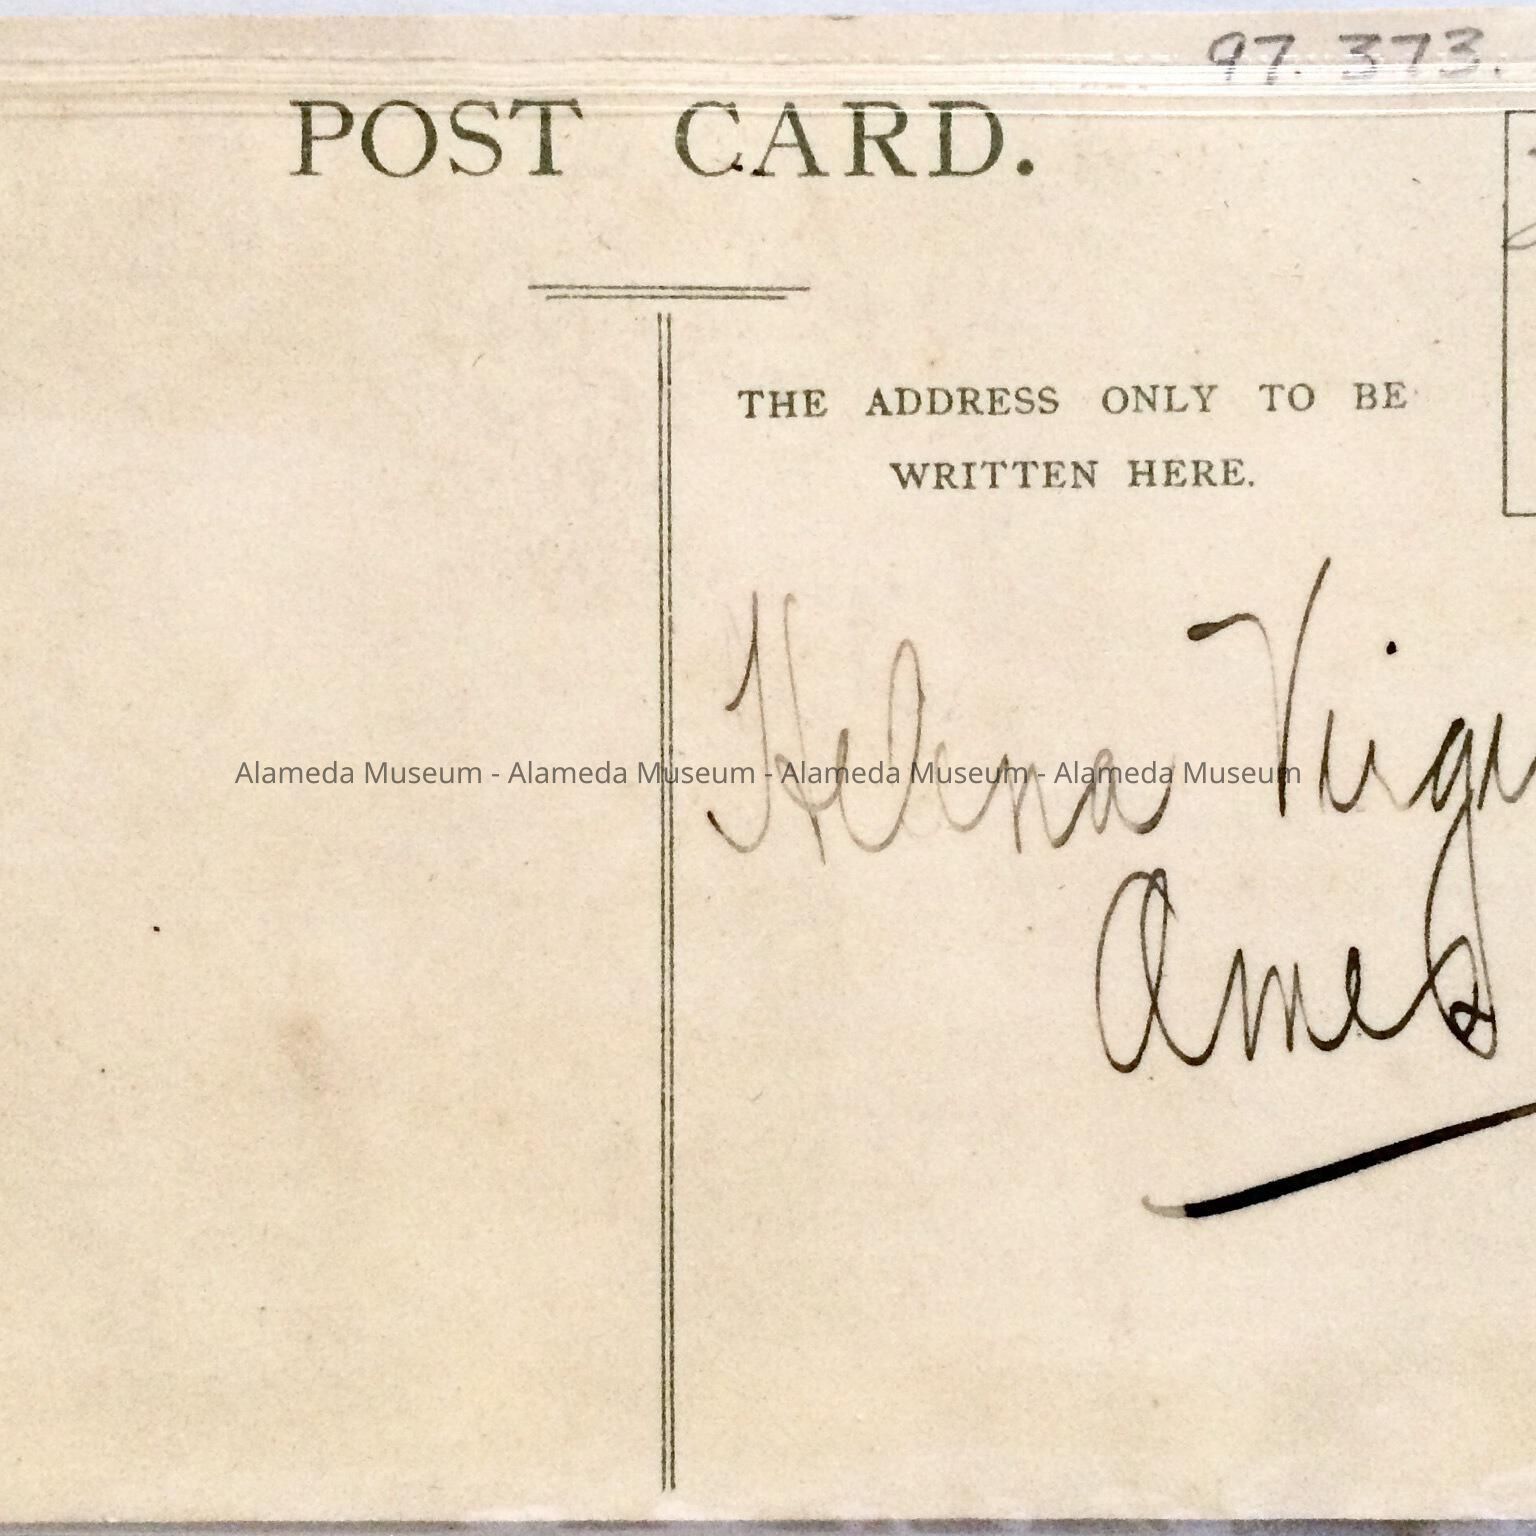 97.373.
POST CARD.
THE ADDRESS ONLY TO BE
WRITTEN HERE.
Helena Virgi
Alameda Museum - Alameda Museum - Alameda Museum - Alameda Museum
Ames